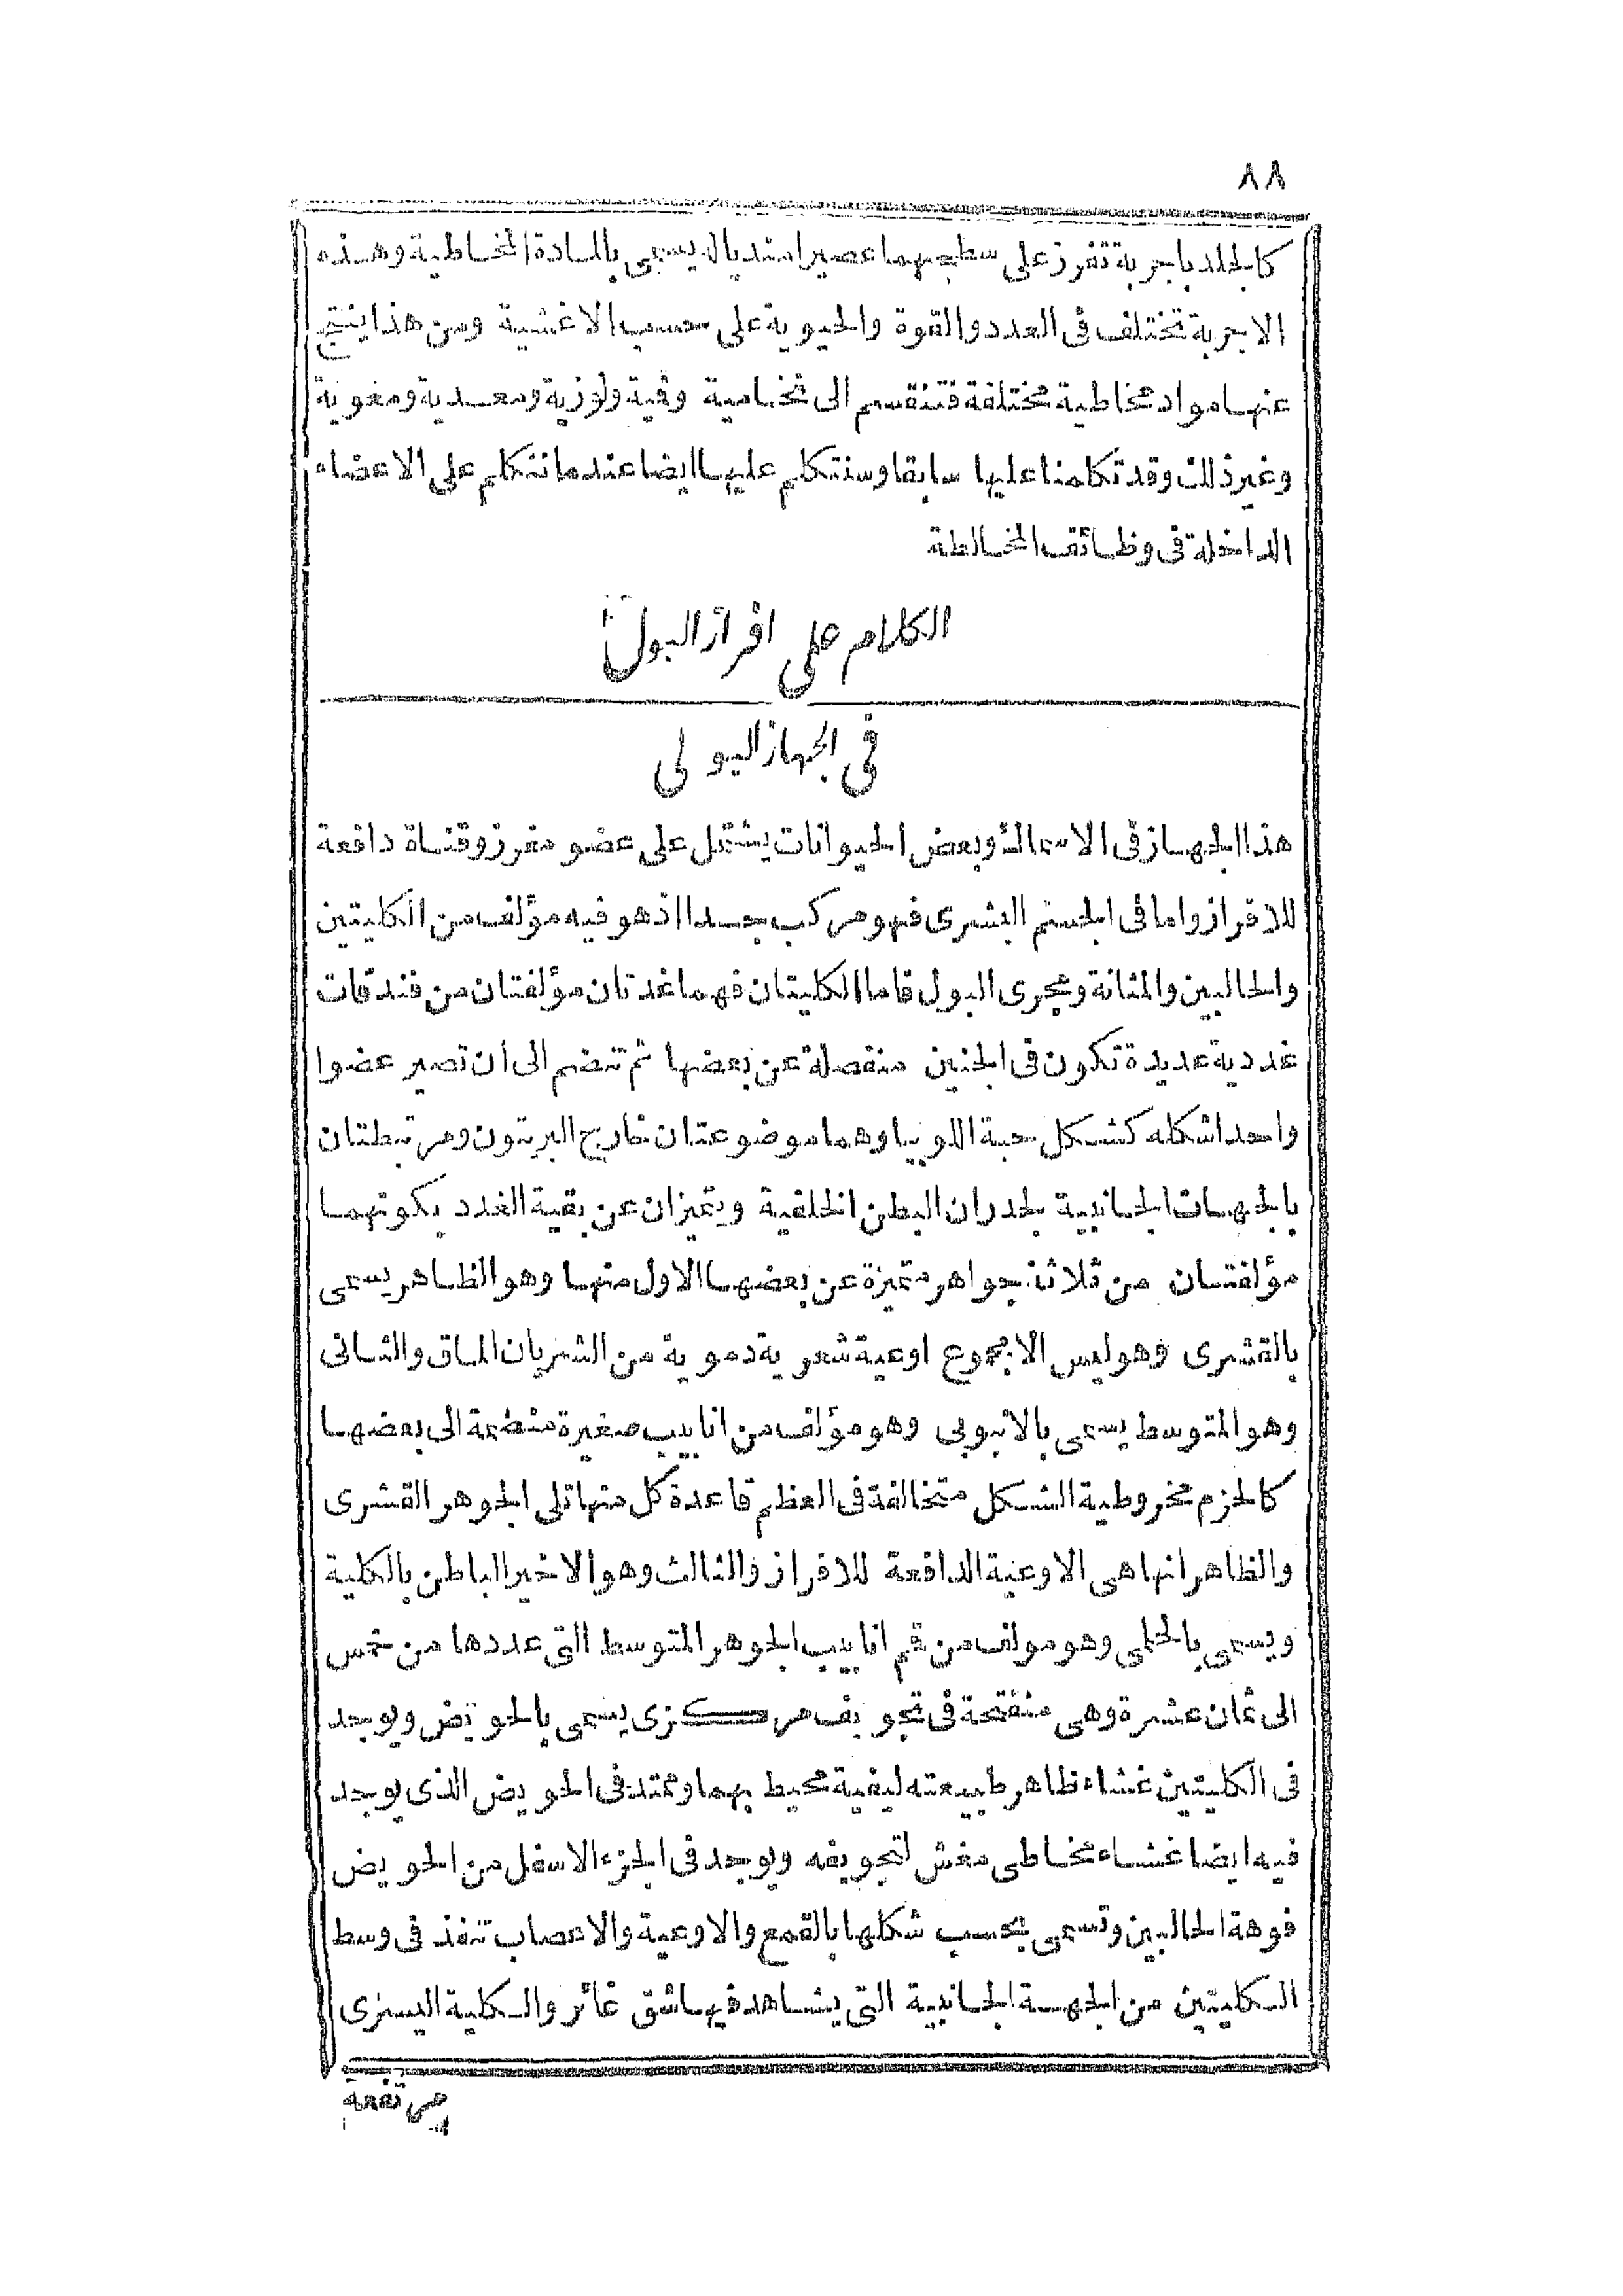 ٨٨
كالجلد باجربة تفرز على سطحهما عصيرا منديا له يسمى بالمادة المخاطية وهذه
الاجربة تختلف فى العدد والقوة والحيوية على حسب الاغشية ومن هذا ينتج
عنها مواد مخاطية مختلفة فتنقسم الى نخامية وفية ولوزية ومعدية ومعوية
وغير ذلك وقد تكلمنا عليها سابقا وسنتكلم عليها ايضا عندما نتكلم على الاعضاء
الداخلة فى وظائف المخالطة
الكلام على افراز البول
فى الجهاز البولى
هذا الجهاز فى الاسماك وبعض الحيوانات يشتمل على عضو مفرز وقناة دافعة
للافراز واما فى الجسم البشرى فهو مركب جدا اذ هو فيه مؤلف من الكليتين
والحالبين والمثانة ومجرى البول فاما الكليتان فهما غدتان مؤلفتان من فندقات
غددية عديدة تكون فى الجنين منفصلة عن بعضها ثم تنضم الى ان تصير عضوا
واحدا شكله كشكل حبة اللوبيا وهما موضوعتان خارج البريتون ومرتبطتان
بالجهات الجانبية لجدران البطن الخلفية ويتميزان عن بقية الغدد بكونهما
مؤلفتان من ثلاثة جواهر متميزة عن بعضها الاول منها وهو الظاهر يسمى
بالقشرى وهو ليس الا مجموع اوعية شعرية دموية من الشريان الماق والثانى
وهو المتوسط يسمى بالانبوبى وهو مؤلف من انابيب صغيرة منضمة الى بعضها
كالحزم مخروطية الشكل متخالفة فى العظم قاعدة كل منها تلى الجوهر القشرى
والظاهر انها هى الاوعية الدافعة للافراز والثالث وهو الاخير الباطن بالكلية
ويسمى بالحلمى وهو مولف من قم انابيب الجوهر المتوسط التى عددها من خمس
الى ثمان عشرة وهى منفتحة فى تجويف مركزى يسمى بالحويض ويوجد
فى الكليتين غشاء ظاهر طبيعته ليفية محيط بهما وممتد فى الحويض الذى يوجد
فيه ايضا غشاء مخاطى مغش لتجويفه ويوجد فى الجزء الاسفل من الحويض
فوهة الحالبين وتسمى بحسب شكلها بالقمع والاوعية والاعصاب تنفذ فى وسط
الكليتين من الجهة الجانبية التى يشاهد فيها شق غائر والكلية اليسرى
مرتفعة